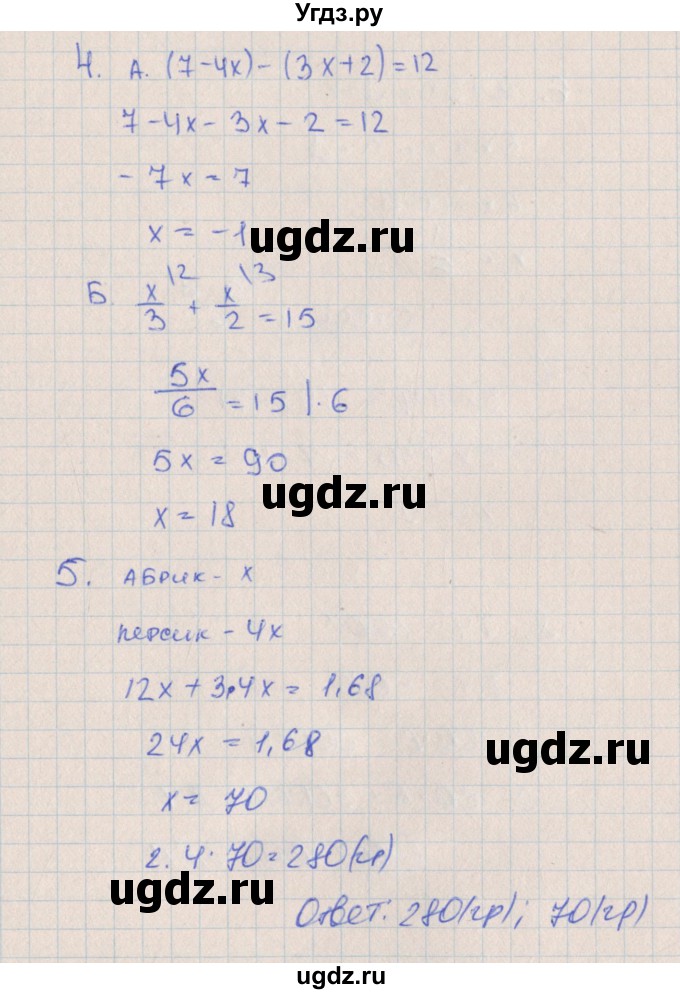 Угдз.ру
4. А. (7-4x)-(3x+2)=12
7-4x-3x-2=12
-7x=7
x=-1
ugdz.ru
Б. x/3\2 + x/2\3 =15
5x/6 =15 |·6
5x=90
ugdz.ru
x=18
5. Абрик - x
персик - 4x
12x+3·4x=1,68
24x=1,68
ugdz.ru
x=70
2. 4·70=280(гр)
ugdz.ru
Ответ: 280(гр); 70(гр)
ugdz.ru